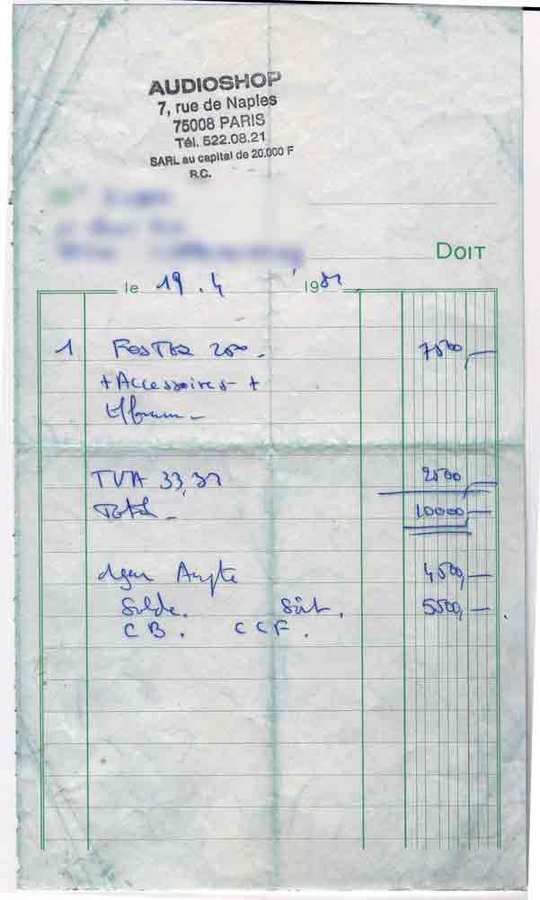 AUDIOSHOP
7, rue de Naples
75008 PARIS
Tél. 522.08.21
SARL au capital de 20.000 F
R.C.
DOIT
le 19.4 198
1 FosTex 250. 7500,—
+ Accessoires +
TVA 33,33 2500
Total — 10000,—
4500,—
Solde. Soit. 5500,—
CB. CCF.